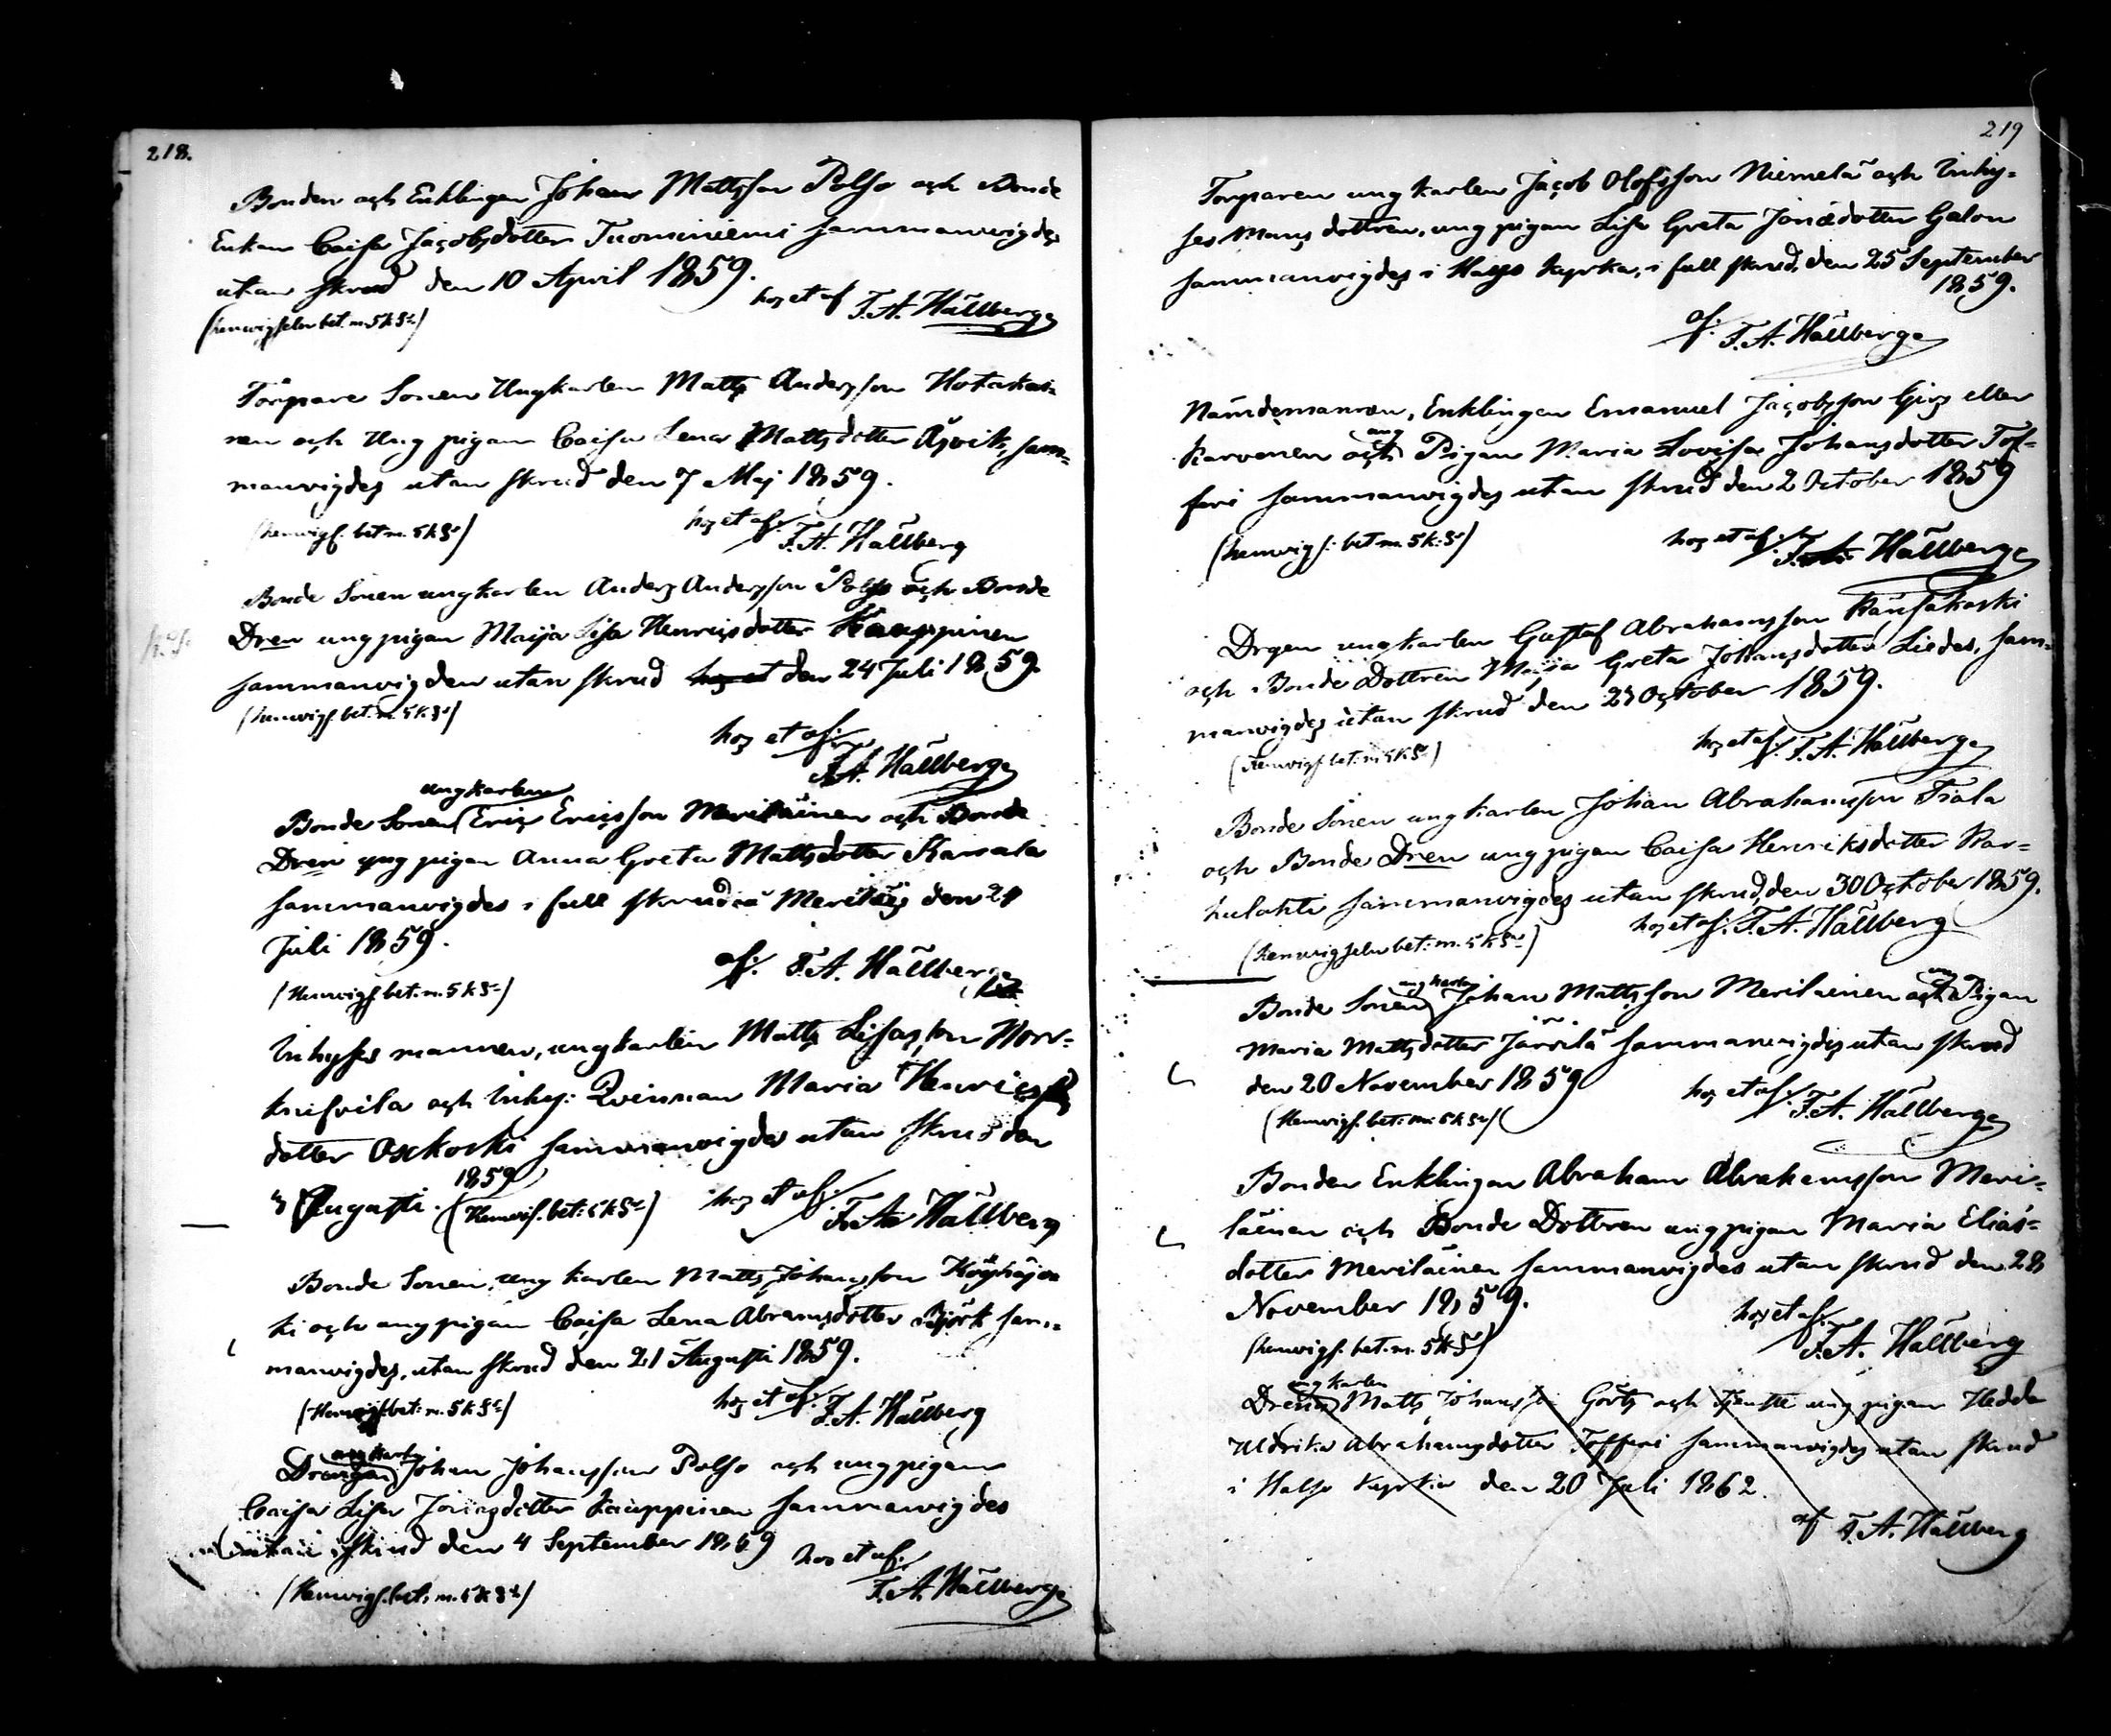 218.
Bonden och Enklingen Johan Mattsson Polso och Bonde
Enkan Caisa Jacobsdotter Tuominiemi sammanvigdes
utan skrud den 10 April 1859.
hos et af F. A. Hällberg
(hemvigseln bet. m. 5 k. Sr)
Torpare Sonen Ungkarlen Matts Andersson Hotakai=
nen och Ung pigan Caisa Lena Mattsdotter Åsvik, sam=
manvigdes utan skrud den 7 Maj 1859.
(hemvigs. bet. m. 5 k. Sr)
hos et af F. A. Hällberg
Bonde Sonen ungkarlen Anders Andersson Polso och Bonde
Dren ung pigan Maija Lisa Henricsdotter Kauppinen
sammanvigden utan skrud hos et den 24 Juli 1859.
(hemvigs. bet. m. 5 k. Sr)
hos et af:
F. A. Hällberg
ungkarlen
Bonde Sonen Eric Ericsson Meriläinen och Bonde
Dren ung pigan Anna Greta Mattsdotter Kanala
sammanvigdes i full skrud å Meriläis den 24
Juli 1859.
af: F. A. Hällberg
(Hemvigs. bet. m. 5 k. Sr)
Inhyses mannen, ungkarlen Matts Lisasson Norr=
knifvila och Inhy: Qvinnan Maria Henrics
dotter Oxkoski sammanvigdes utan skrud den
1859
Augusti. (Hemvis. bet: 5 k Sr) hos et af: F. A. Hällberg
Bonde Sonen, ung karlen Matts Johansson Köyhäjo
ki och ung pigan Caisa Lena Abramsdotter Björk sam=
manvigdes, utan skrud den 21 Augusti 1859.
(Hemvigs. bet. m. 5 k. Sr)
hos et af: F. A. Hällberg
ungkarlen
Drengen Johan Johansson Polso och ung pigan
Caisa Lisa Jonasdotter Kauppinen sammanvigdes
utan skrud den 4 September 1859
hos et af:
F. A. Hällberg
(Hemvigs. bet. m. 5 k Sr)
219
Torparen ung karlen Jacob Olofsson Niemelä och Inhy=
ses Mans dottren, ung pigan Lisa Greta Jonædotter Galon
sammanvigdes i Halso kyrka, i full skrud, den 25 September
1859.
af: F. A. Hällberg
Nämdemannen, Enklingen Emanuel Jacobsson Girs eller
ung
Karvonen och Pigan Maria Lovisa Johansdotter Tof=
feri sammanvigdes utan skrud den 2 October 1859
(hemvigs: bet m. 5 k: Sr)
hos et af: F. A. Hällberg
Drgen ungkarlen Gustaf Abrahamsson Känsäkoski
och Bonde Dottren Maija Greta Johansdotter Liedes, sam=
manvigdes utan skrud den 23 October 1859.
(Hemvigs. bet: m 5 k. Sr)
hos et af: F. A. Hällberg
Bonde Sonen ung karlen Johan Abrahamsson Tiala
och Bonde Dren ung pigan Caisa Henriksdotter Kar=
hulahti sammanvigdes utan skrud, den 30 October 1859.
(hemvigseln bet: m. 5 k. Sr)
hos et af: F. A. Hällberg
ung karlen ung
Bonde Sonen Johan Mattsson Meriläinen och Pigan
Maria Mattsdotter Järvilä sammanvigdes utan skrud
den 20 November 1859
hos et af: F. A. Hällberg
(Hemvigs. bet: m. 5 k Sr)
Bonden Enklingen Abraham Abrahamsson Meri=
läinen och Bonde Dottren ung pigan Maria Elias=
dotter Meriläinen sammanvigdes utan skrud den 28
November 1859.
hos et af:
F. A. Hällberg
(hemvigs. bet. m. 5 k S)
ung karlen
Drengen Matts Johansson Görts och tjenste ung pigan Hedda
Uldrika Abrahamsdotter Tofferi sammanvigdes utan skrud
i Halso kyrka den 20 Juli 1862.
af F. A. Hällberg